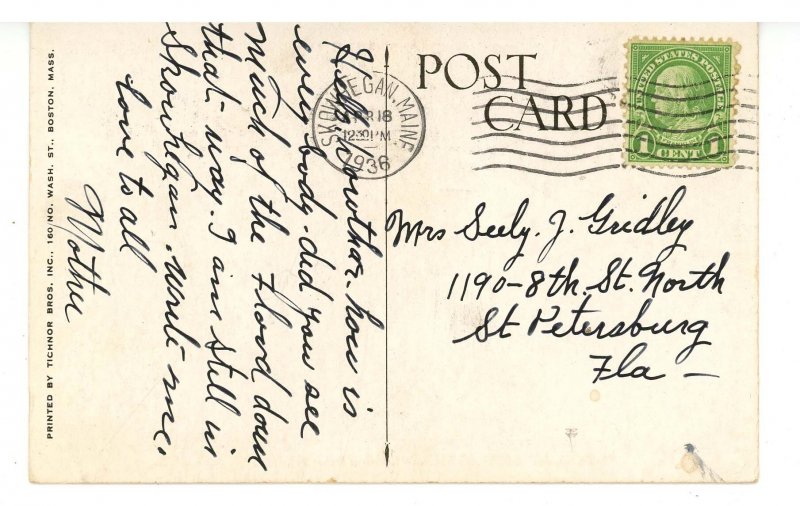 POST
CARD
SKOWHEGAN, MAINE
APR 18
12:30 PM
1936
UNITED STATES POSTAGE
1 1
CENT
Mrs Seely. J. Gridley
1190-8th. St. North
St Petersburg
Fla -
Hello. how is
every body. did you see
much of the Flood down
that way. I am still in
Skowhegan. write me.
Love to all
Mother
PRINTED BY TICHNOR BROS. INC., 160 NO. WASH. ST., BOSTON, MASS.